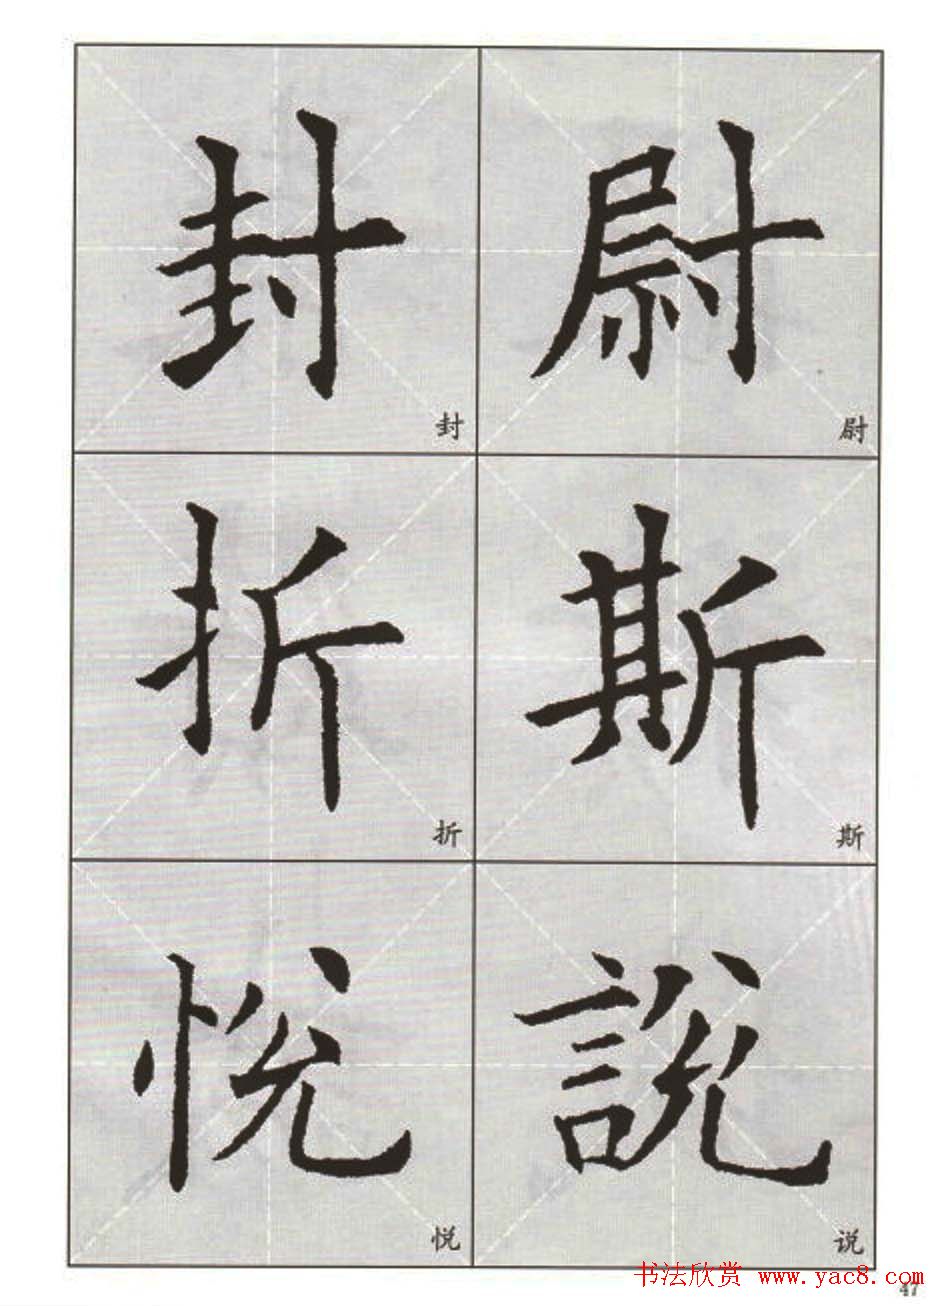 封 尉
封 尉
折 斯
折 斯
悦 說
悦 说
书法欣赏 www.yac8.com
47